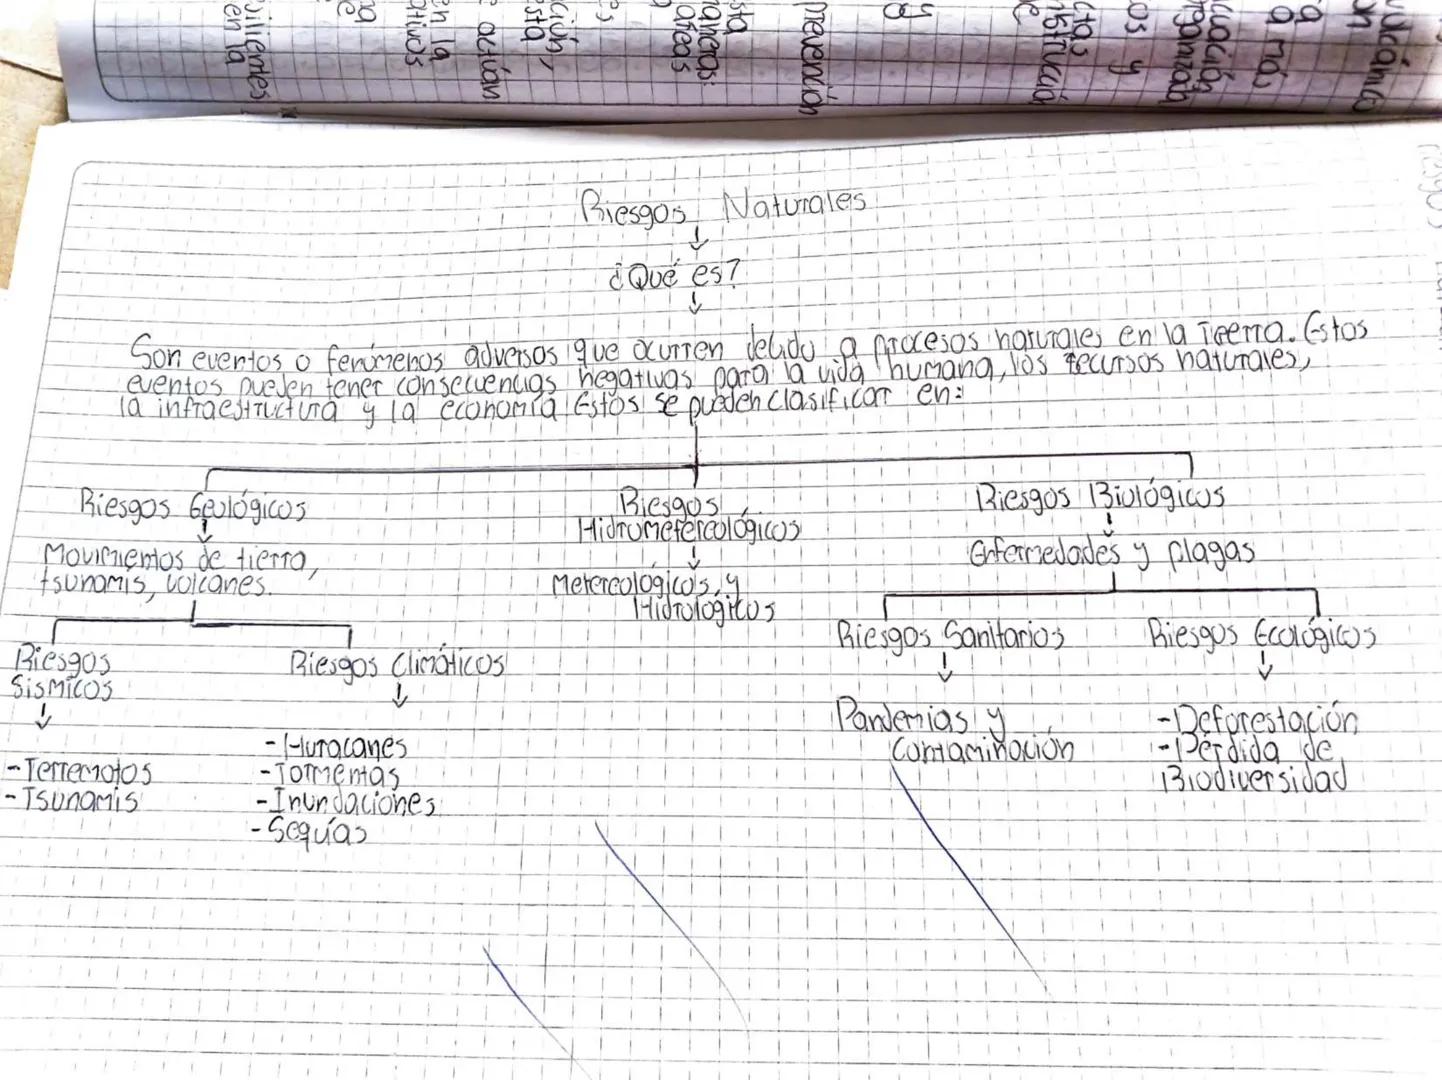 Riesgos Naturales
¿Qué es?
Son eventos o fenómenos adversos que ocurren debido a procesos naturales en la Tierra. Estos
eventos pueden tener consecuencias negativas para la vida humana, los recursos naturales,
la infraestructura y la economía. Estos se pueden clasificar en:
Riesgos Geológicos
Movimientos de tierra,
tsunamis, volcanes.
Riesgos
Sísmicos
-Terremotos
-Tsunamis
Riesgos Climáticos
-Huracanes
-Tormentas
-Inundaciones
-Sequías
Riesgos
Hidrometereológicos
Metereológicos, y
Hidrológicos
Riesgos Biológicos
Enfermedades y plagas
Riesgos Sanitarios
Pandemias y
contaminación
Riesgos Ecológicos
-Deforestación
-Pérdida de
Biodiversidad